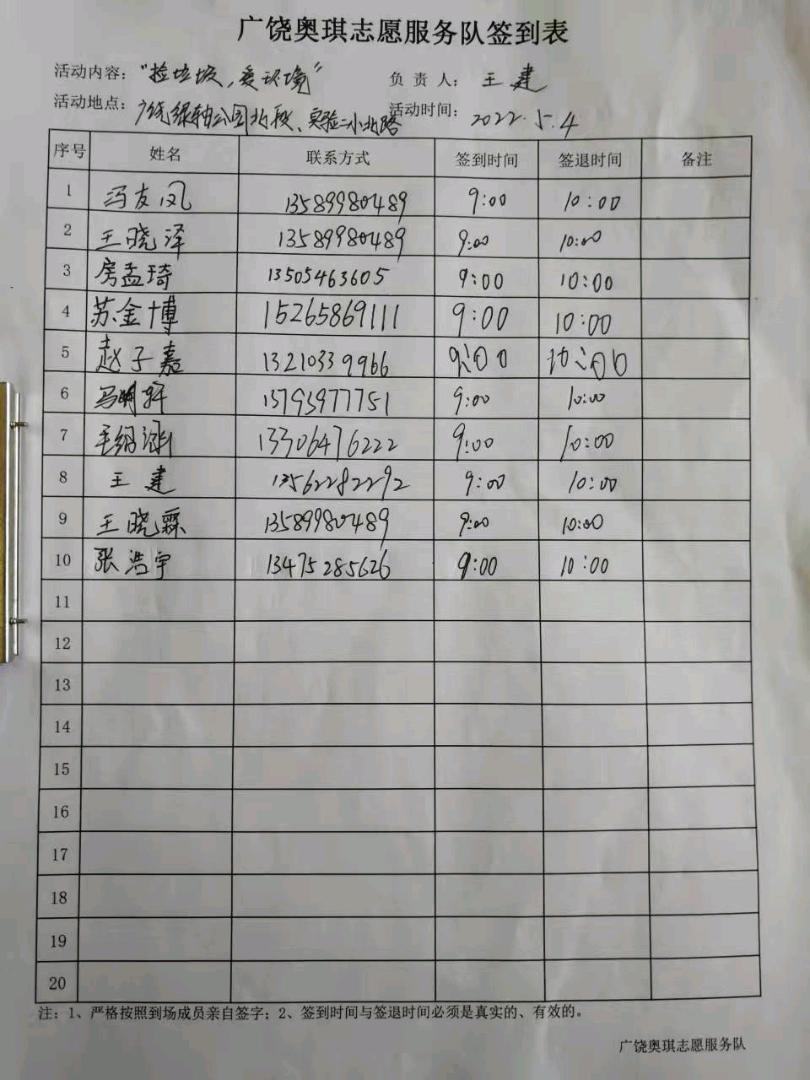 广饶奥琪志愿服务队签到表
活动内容：“捡垃圾，爱环境” 负责人：王建
活动地点：广饶绿轴公园北段、实验二小北路 活动时间：2022.5.4
序号 姓名 联系方式 签到时间 签退时间 备注
1 冯友凤 13589980489 9:00 10:00
2 王晓泽 13589980489 9:00 10:00
3 房孟琦 13505463605 9:00 10:00
4 苏金博 15265869111 9:00 10:00
5 赵子嘉 13210339966 9:00 10:00
6 冯明轩 13793977751 9:00 10:00
7 13306476222 9:00 10:00
8 王建 13562282292 9:00 10:00
9 王晓霖 13589980489 9:00 10:00
10 张浩宇 13475285626 9:00 10:00
11
12
13
14
15
16
17
18
19
20
注：1、严格按照到场成员亲自签字；2、签到时间与签退时间必须是真实的、有效的。
广饶奥琪志愿服务队